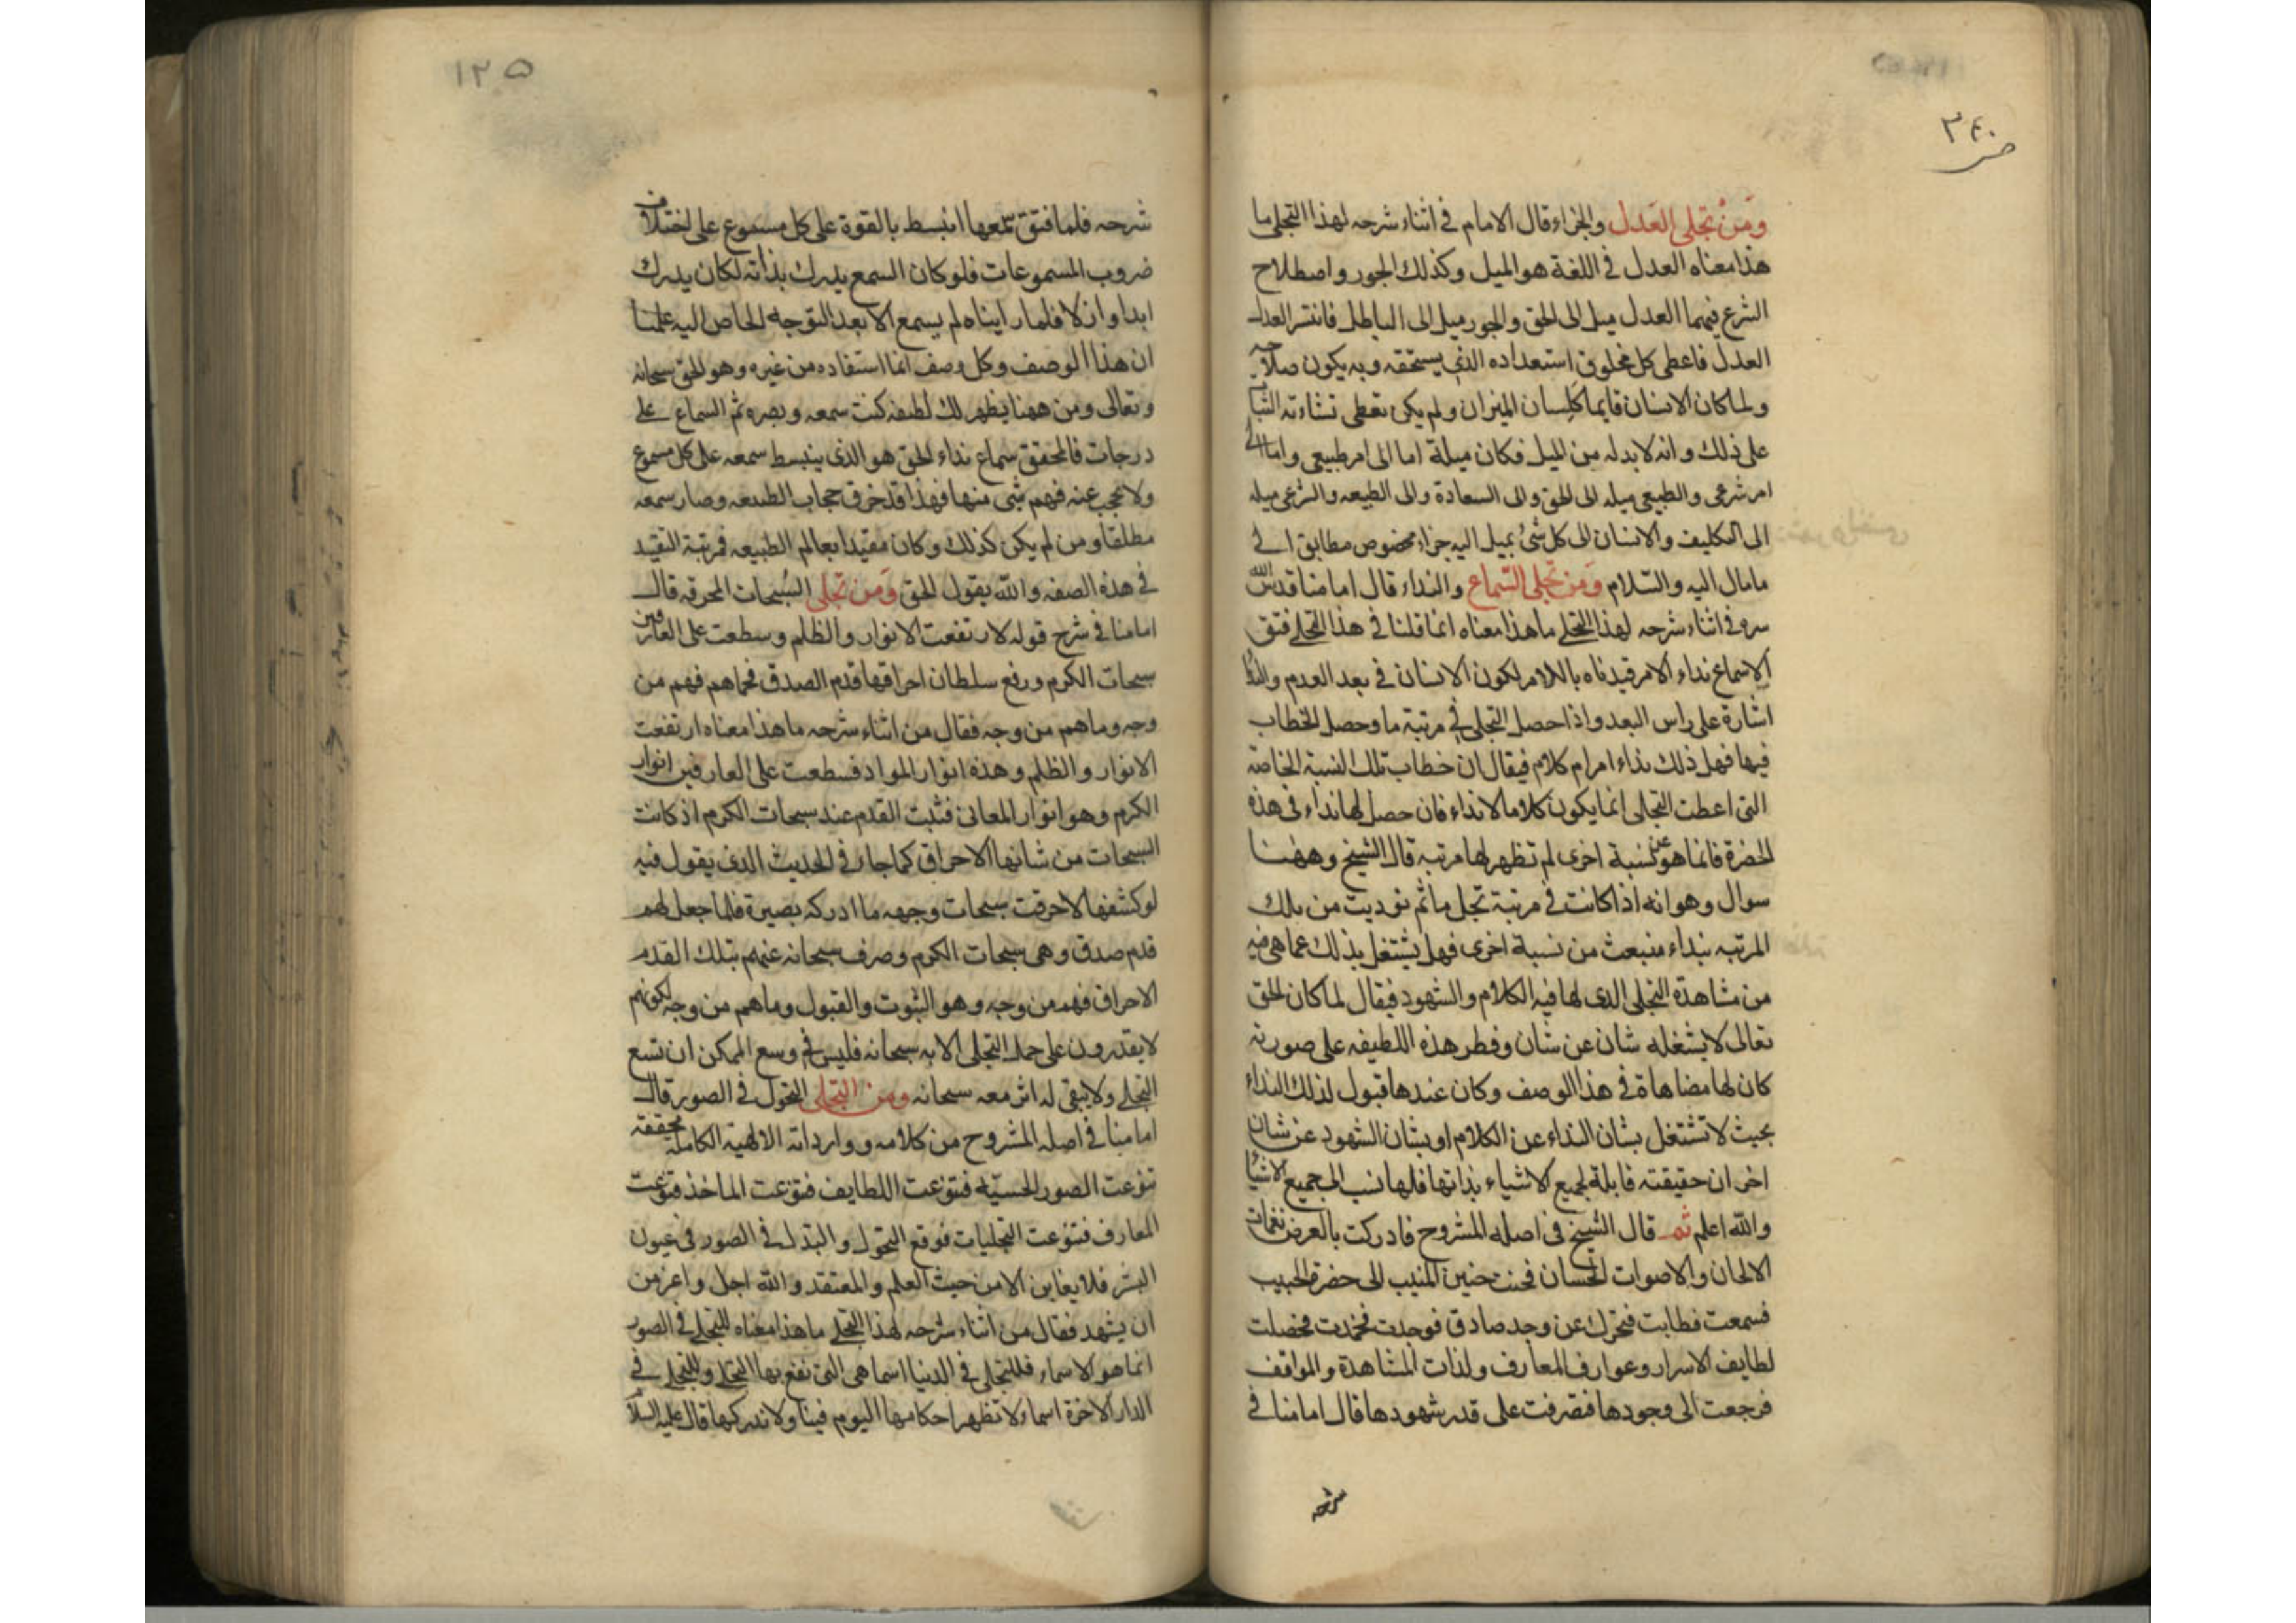 ٣٤٠
ومن تجلى العدل والجزاء قال الامام في اثناء شرحه لهذا التجلي ما
هذا معناه العدل في اللغة هو الميل وكذلك الجور واصطلاح
الشرع فيهما العدل ميل الى الحق والجور ميل الى الباطل فانتشر العدل
العدل فاعطى كل مخلوق استعداده الذي يستحقه وبه يكون صلاحه
ولما كان الانسان قايما كلسان الميزان ولم يكن تعطى نشاءته الثبات
على ذلك وانه لا بد له من الميل فكان ميله اما الى امر طبيعي واما الى
امر شرعي والطبيعي ميله الى الحق والى السعادة والى الطبيعه والشرعي ميله
الى التكليف والانسان الى كل شئ يميل اليه جزاء مخصوص مطابق الى
ما مال اليه والسلام ومن تجلى السماع والنداء قال امامنا قدس الله
سره في اثناء شرحه لهذا التجلي ما هذا معناه انما قلنا في هذا التجلي فتق
الاسماع نداء الامر قيدناه باللام لكون الانسان في بعد العدم والنداء
اشارة على راس البعد واذا حصل التجلي في مرتبة ما وحصل الخطاب
فيها فهل ذلك نداء امر ام كلام فيقال ان خطاب تلك النسبة الخاصة
التي اعطت التجلى انما يكون كلاما لا نداء فان حصل لها نداء في هذه
الحضرة فانما هو عن نسبة اخرى لم تظهر لها مرتبه قال الشيخ وههنا
سوال وهو انه اذا كانت في مرتبة تجل ما ثم نوديت من تلك
المرتبه بنداء منبعث من نسبة اخرى فهل يشتغل بذلك عما هي فيه
من مشاهدة التجلي الذي لها فيه الكلام والشهود فيقال لما كان الحق
تعالى لا يشغله شان عن شان وفطر هذه اللطيفه على صورته
كان لها مضاهاة في هذا الوصف وكان عندها قبول لذلك النداء
بحيث لا تشتغل بشان النداء عن الكلام او بشان الشهود عن شان
اخر ان حقيقته قابلة لجميع الاشياء بذاتها فلها نسب الى جميع الاشيا
والله اعلم ثم قال الشيخ في اصله المشروح فادركت بالعرض نغمات
الالحان والاصوات الحسان فحنت حنين المنيب الى حضرة الحبيب
فسمعت فطابت فتحرك عن وجد صادق فوجدت فخمدت فحصلت
لطايف الاسرار وعوارف المعارف ولذات المشاهدة والمواقف
فرجعت الى وجودها فتصرفت على قدر شهودها قال امامنا في
شرحه
١٢٥
شرحه فلما فتق سمعها انبسط بالقوة على كل مسموع على اختلاف
ضروب المسموعات فلو كان السمع يدرك بذاته لكان يدرك
ابدا وازلا فلما رايناه لم يسمع الا بعد التوجه الخاص اليه علمنا
ان هذا الوصف وكل وصف انما استفاده من غيره وهو الحق سبحانه
وتعالى ومن ههنا يظهر لك لطيفه كنت سمعه وبصره ثم السماع على
درجات فالمحقق سماع نداء الحق هو الذي ينبسط سمعه على كل مسموع
ولا يحجب عنه فهم شئ منها فهذا قد خرق حجاب الطبيعه وصار سمعه
مطلقا ومن لم يكن كذلك وكان مقيدا بعالم الطبيعه فمرتبة التقيد
في هذه الصفه والله يقول الحق ومن تجلى السبحات المحرقه قال
امامنا في شرح قوله لا رتفعت الانوار والظلم وسطعت على العارفين
سبحات الكرم ورفع سلطان احراقها قدم الصدق فحماهم فهم من
وجه وما هم من وجه فقال من اثناء شرحه ما هذا معناه ارتفعت
الانوار والظلم وهذه انوار المواد فسطعت على العارفين انوار
الكرم وهو انوار المعاني فثبت القدم عند سبحات الكرم اذ كانت
السبحات من شانها الاحراق كما جاء في الحديث الذي يقول فيه
لو كشفها لاحرقت سبحات وجهه ما ادركه بصيرة فلما جعل لهم
قدم صدق وهي سبحات الكرم وصرف سبحانه عنهم بتلك القدم
الاحراق فهم من وجه وهو الثبوت والقبول وما هم من وجه لكونهم
لا يقدرون على حمل التجلي الا به سبحانه فليس في وسع الممكن ان تسع
التجلي ولا يبقى له اثر معه سبحانه ومن التجلى التحول في الصور قال
امامنا في اصله المشروح من كلامه ووارداته الالهية الكاملة محققه
تنوعت الصور الحسيه فتنوعت اللطايف فتنوعت الماخذ فتنوعت
المعارف فتنوعت التجليات فوقع التحول والتبدل في الصور في عيون
البشر فلا يعاين الا من حيث العلم والمعتقد والله اجل واعز من
ان يشهد فقال من اثناء شرحه لهذا التجلي ما هذا معناه للتجلي في الصور
انما هو الاسماء فللتجلي في الدنيا اسما هي التي تقع بها التجلي وللتجلي في
الدار الاخرة اسما ولا تظهر احكامها اليوم فينا ولا ندركها قال عليه السلام